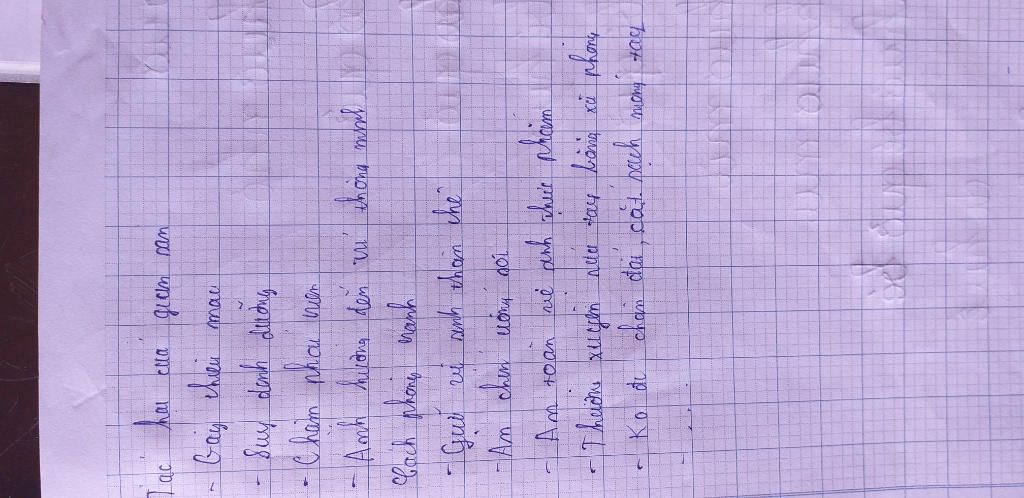 Tác hại của giun sán
- Gây thiếu máu
- Suy dinh dưỡng
- Chậm phát triển
- Ảnh hưởng đến trí thông minh
Cách phòng tránh
- Giữ vệ sinh thân thể
- Ăn chín uống sôi
- An toàn vệ sinh thực phẩm
- Thường xuyên rửa tay bằng xà phòng
- Ko đi chân đất, cắt sạch móng tay
- ...